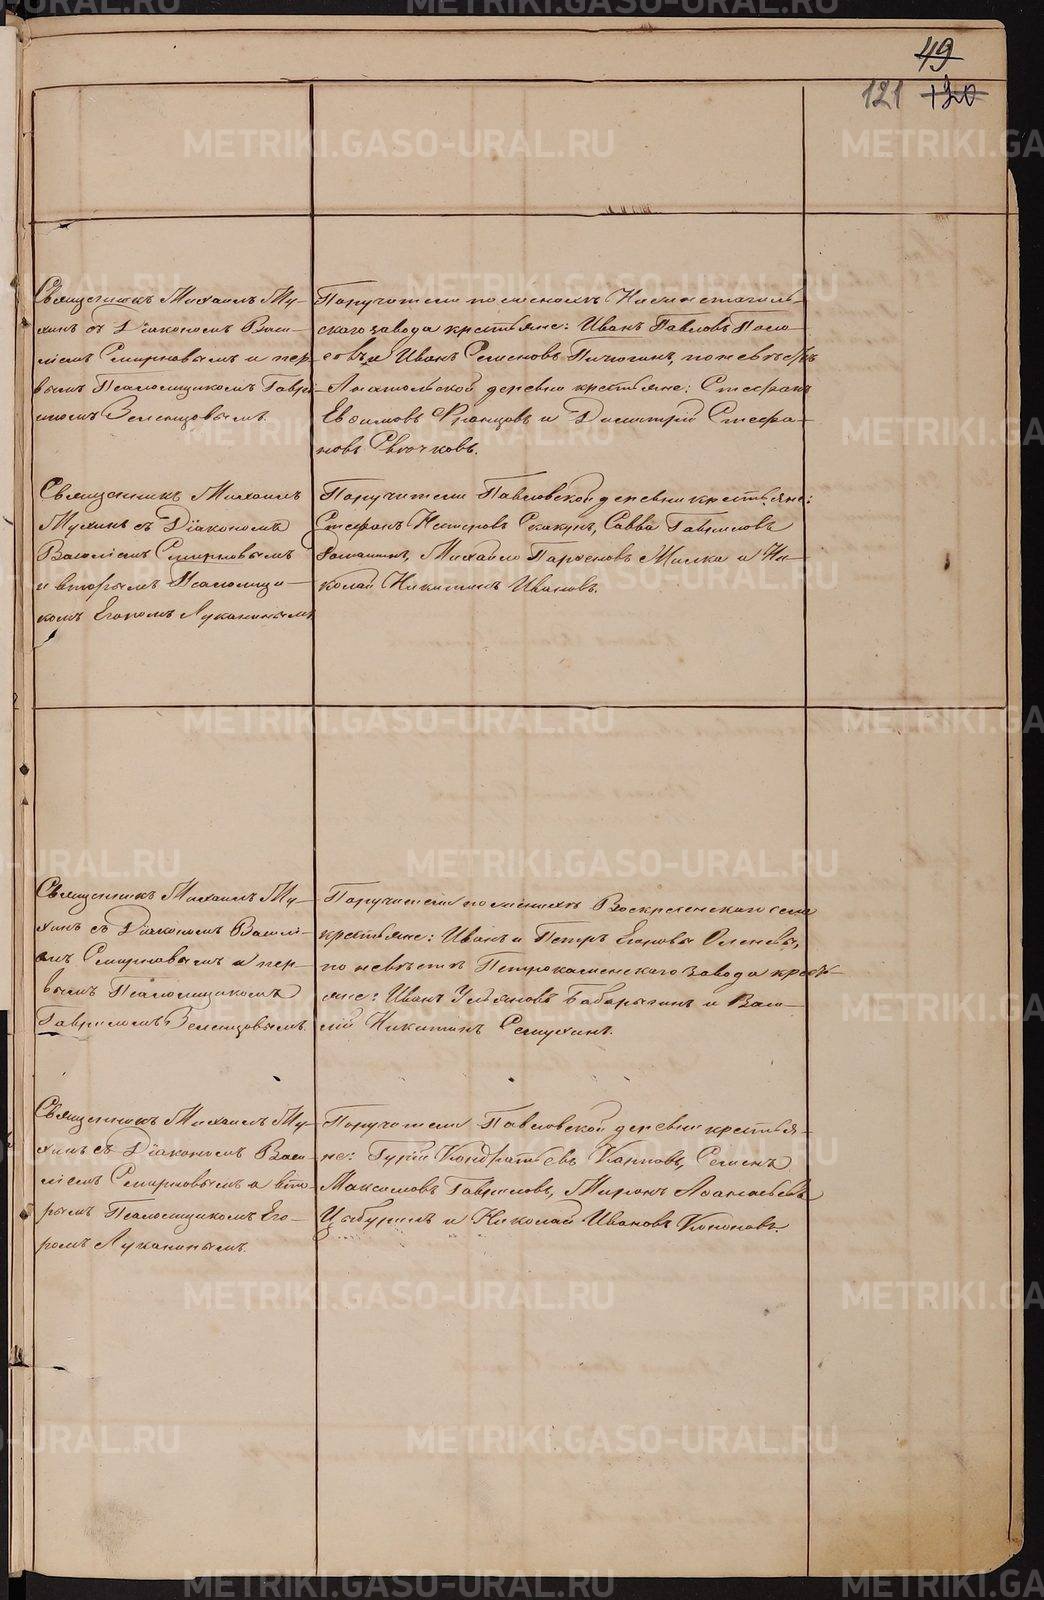 49
121 120
Священникъ Михаилъ Му-
хинъ съ Діакономъ Васи-
ліемъ Смирновымъ и пер-
вымъ Псаломщикомъ Гаври-
иломъ Зеленцовымъ.
Поручители по женихѣ
скаго завода крестьяне: Иванъ Павловъ
и Иванъ Семеновъ Пичюгинъ, по невѣстѣ
Анатольской деревни крестьяне: Стефанъ
Евфимовъ и Димитрій Стефа-
новъ
Священникъ Михаилъ
Мухинъ съ Діакономъ
Василіемъ Смирновымъ
и вторымъ Псаломщи-
комъ Егоромъ Луканинымъ
Поручители Павловской деревни крестьяне:
Стефанъ Нестеровъ Скакунъ, Савва Гавриловъ
Михаило Парѳеновъ Жилка и Ни-
колай Никитинъ Ивановъ.
Священникъ Михаилъ Му-
хинъ съ Діакономъ Василі-
емъ Смирновымъ и пер-
вымъ Псаломщикомъ
Гавріиломъ Зеленцовымъ.
Поручители по женихѣ Воскресенскаго села
крестьяне: Иванъ и Петръ
по невѣстѣ Петрокаменскаго завода кресть-
яне: Иванъ Ульяновъ Бабарыкинъ и Васи-
лій Никитинъ Семухинъ.
Священникъ Михаилъ Му-
хинъ съ Діакономъ Васи-
ліемъ Смирновымъ и вто-
рымъ Псаломщикомъ Его-
ромъ Луканинымъ.
Поручители Павловской деревни крестья-
не: Гурій Кондратьевъ Карповъ, Семенъ
Максимовъ Гавриловъ, Миронъ Аѳанасьевъ
Цыбуринъ и Николай Ивановъ Кононовъ.
METRIKI.GASO-URAL.RU